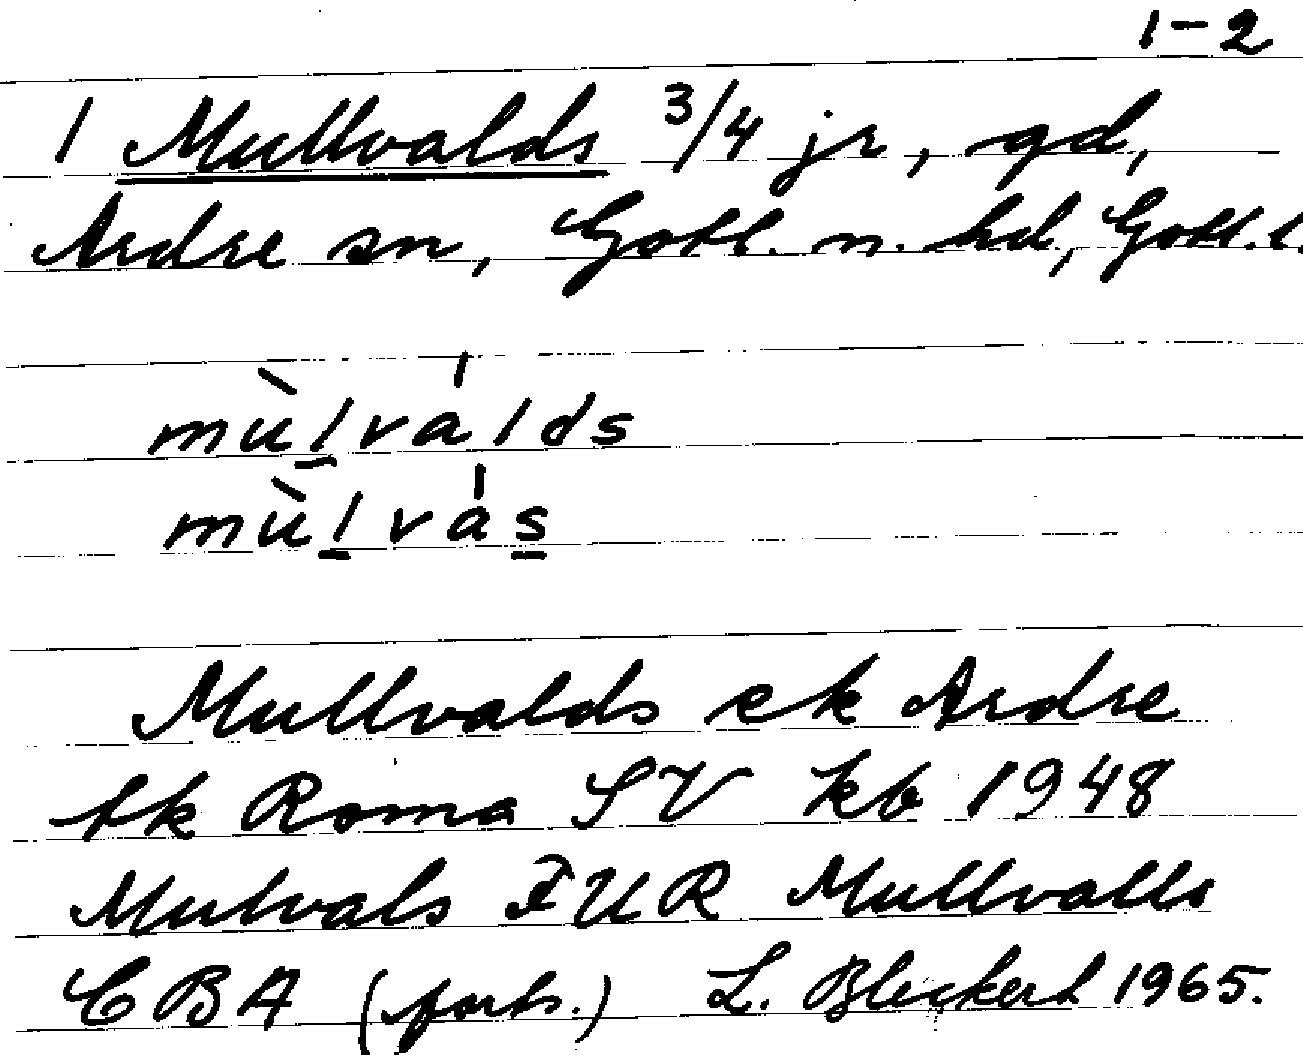 1-2
1 Mullvalds 3/4 jr, gd,
Ardre sn, Gotl. n. hd, Gotl. l.
mùlválds
mùlvás
Mullvalds ek Ardre
tk Roma SV kb 1948
Mulvals JUR Mullvalls
CBA (forts.) L. Bleckert 1965.